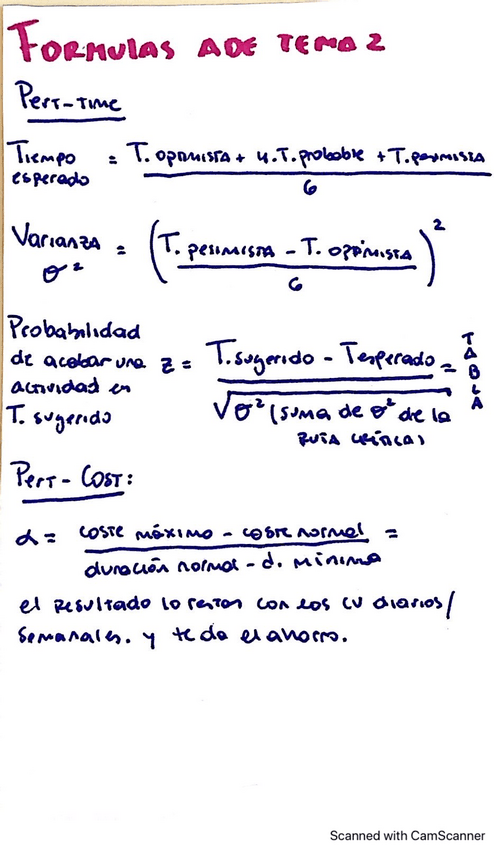 FORMULAS ADE TEMA 2
PERT-TIME
Tiempo esperado = T. optimista + 4.T.probable + T.pesimista
6
Varianza σ² = (T. pesimista - T. optimista)²
6
Probabilidad
de acabar una
actividad en
T. sugerido
z = T.sugerido - Tesperado = TABLA
√σ² (suma de σ² de la
ruta crítica)
PERT - COST:
α = coste máximo - coste normal =
duración normal - d. mínima
el resultado lo restas con los CV diarios/
semanales. y te da el ahorro.
Scanned with CamScanner